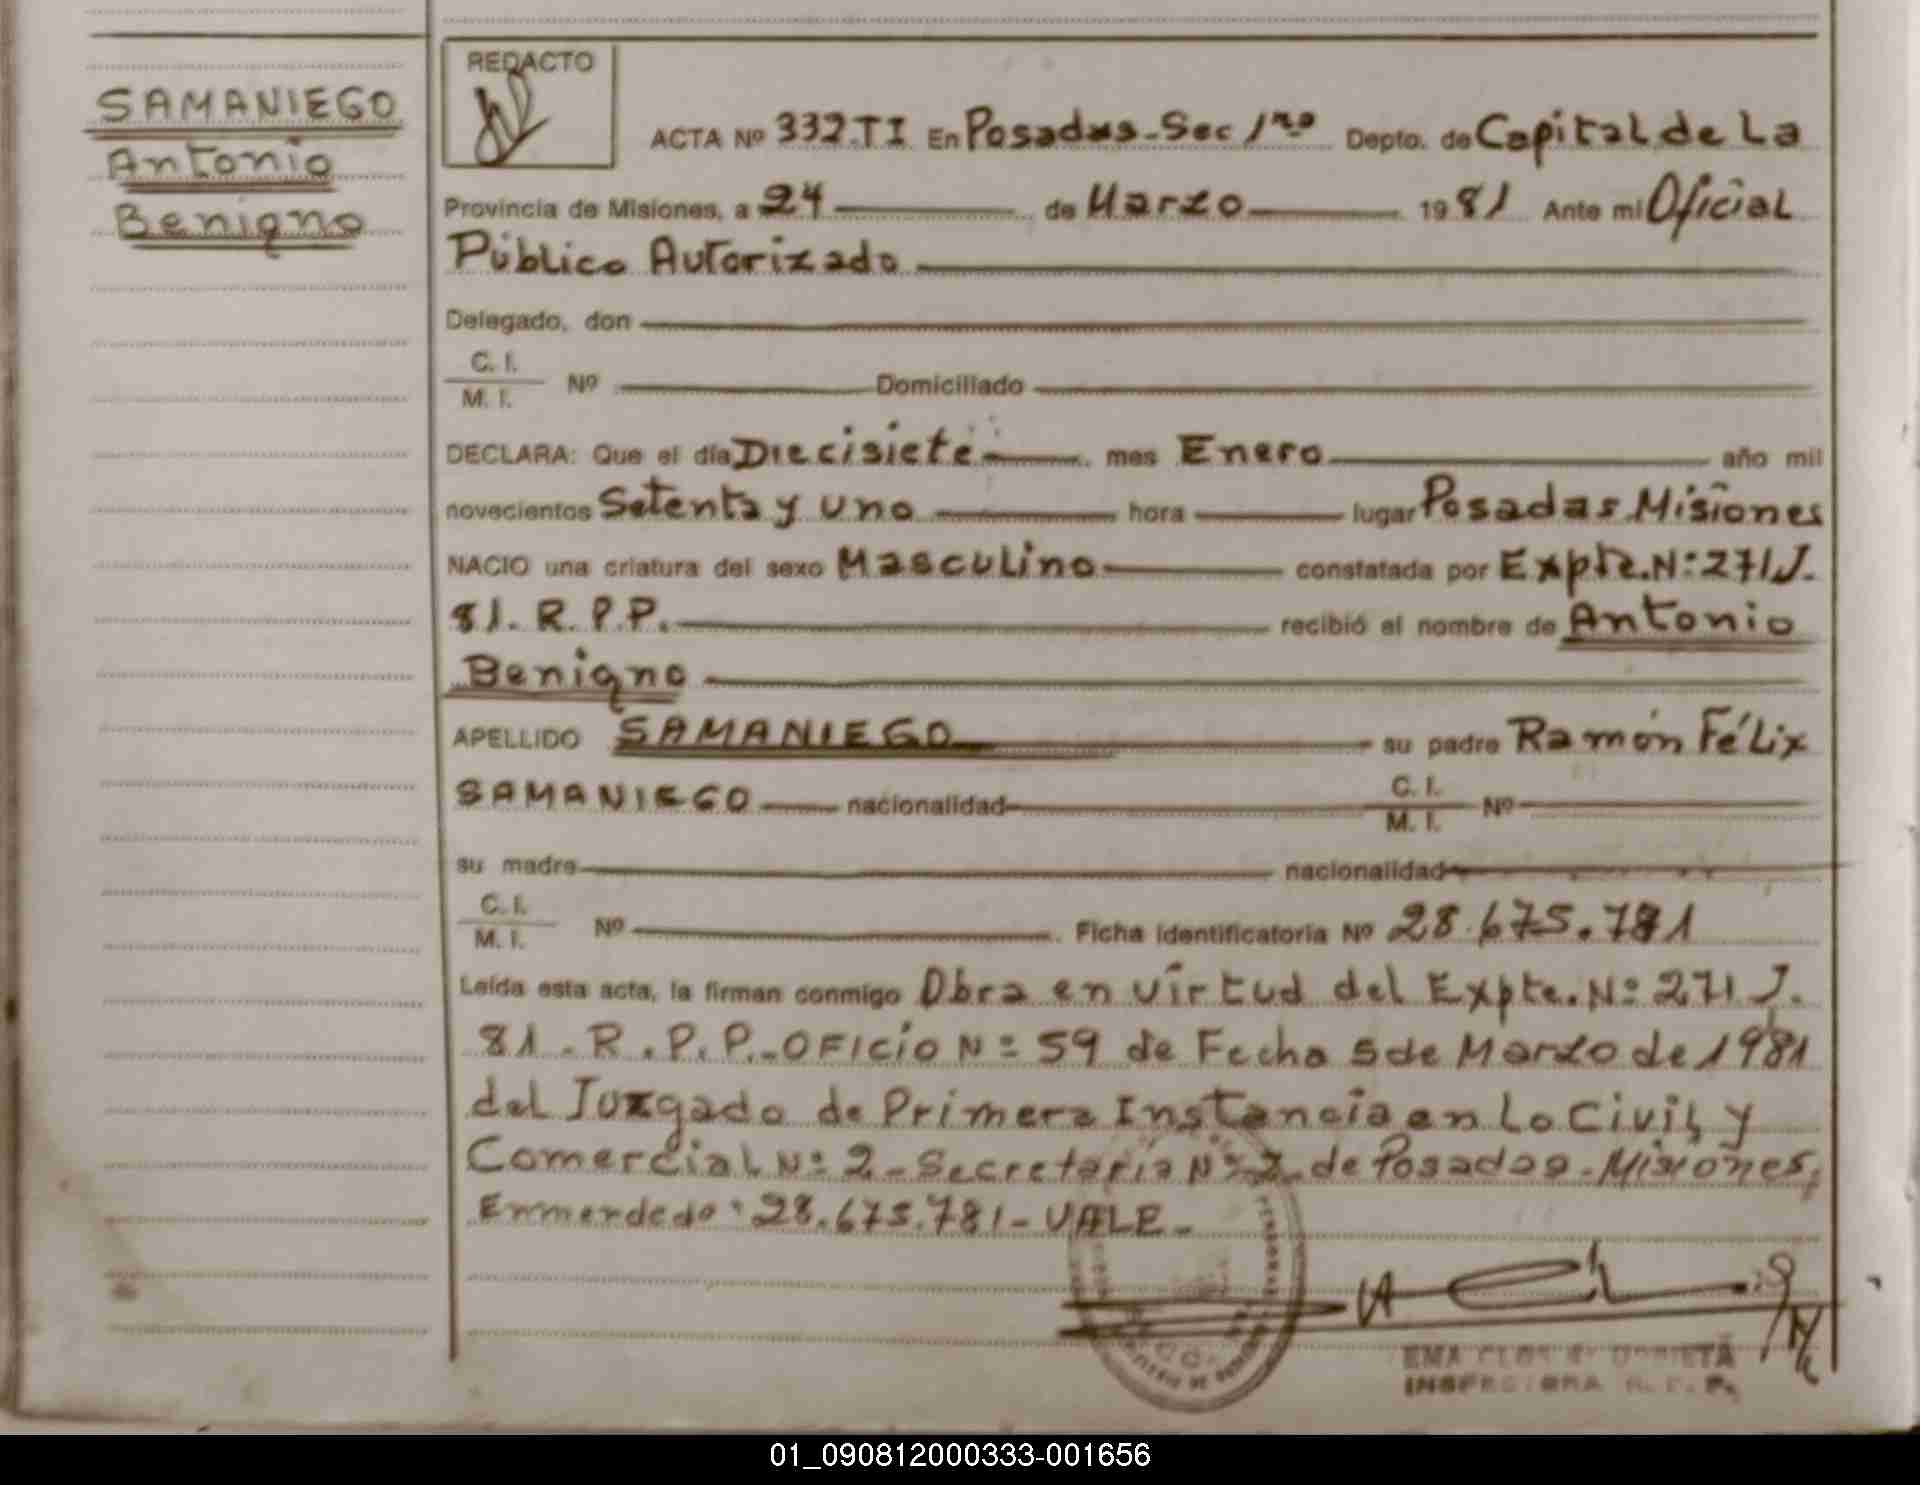 SAMANIEGO
Antonio
Benigno
REDACTO
ACTA Nº 332.TI En Posadas-Sec 1ra Depto. de Capital de La
Provincia de Misiones, a 24 de Marzo 1981 Ante mi Oficial
Público Autorizado
Delegado, don
C. I.
M. I. Nº Domiciliado
DECLARA: Que el día Diecisiete mes Enero año mil
novecientos Setenta y uno hora lugar Posadas Misiones
NACIO una criatura del sexo Masculino constatada por Expte. Nº 271 J.
81. R. P. P. recibió el nombre de Antonio
Benigno
APELLIDO SAMANIEGO su padre Ramón Félix
SAMANIEGO nacionalidad C. I. M. I. Nº
su madre nacionalidad
C. I.
M. I. Nº Ficha identificatoria Nº 28.675.781
Leída esta acta, la firman conmigo Obra en virtud del Expte. Nº 271 J.
81 - R. P. P. - OFICIO Nº 59 de Fecha 5 de Marzo de 1981
del Juzgado de Primera Instancia en Lo Civil y
Comercial Nº 2 - Secretaria Nº 2 de Posadas - Misiones,
Enmendado: 28.675.781 - VALE -
INSPECTORA R. P. P.
01_090812000333-001656